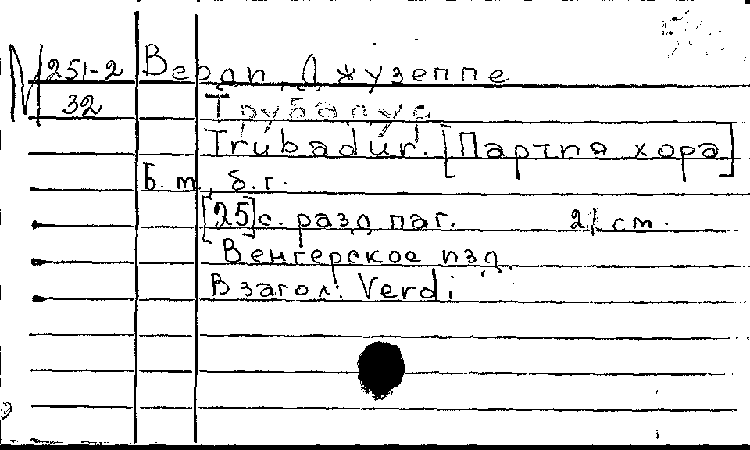 М 251-2 Верди, Джузеппе
32 Трубадур
Trubadur. [Партия хора]
Б. м., б. г.
[25] с. разд. паг. 21 см.
Венгерское изд.
В загол: Verdi